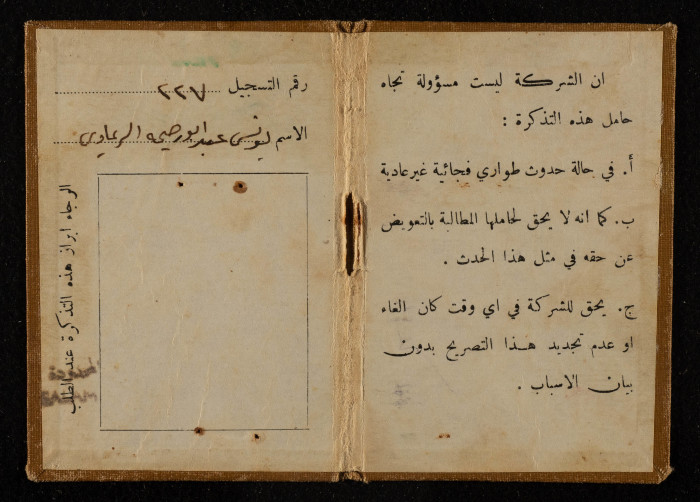 ان الشركة ليست مسؤولة تجاه
حامل هذه التذكرة :
أ. في حالة حدوث طواري فجائية غير عادية
ب. كما انه لا يحق لحاملها المطالبة بالتعويض
عن حقه في مثل هذا الحدث .
ج. يحق للشركة في اي وقت كان الغاء
او عدم تجديد هذا التصريح بدون
بيان الاسباب .
رقم التسجيل
الاسم يونس عبد الريماوي
الرجاء ابراز هذه التذكرة عند الطلب